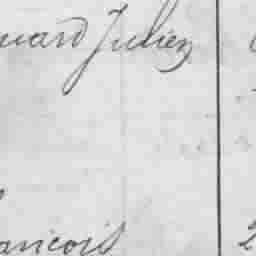 uard Julien
ancois 2